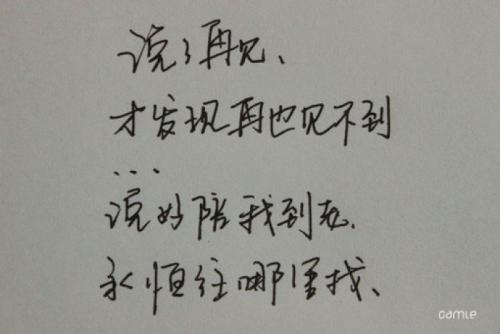 说了再见、
才发现再也见不到
...
说好陪我到老.
永恒往哪里找、
camle